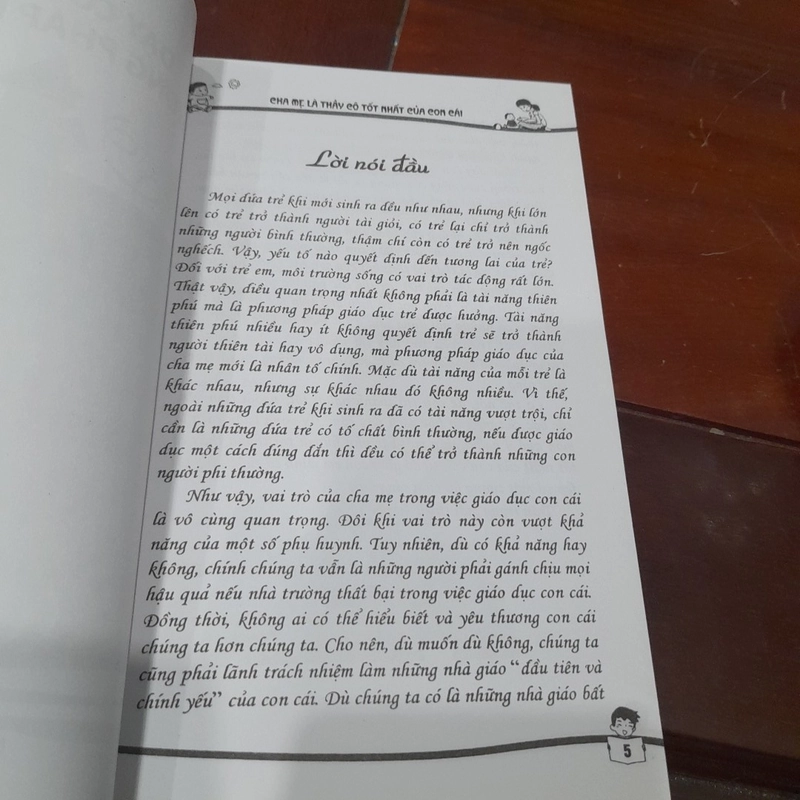 CHA MẸ LÀ THẦY CÔ TỐT NHẤT CỦA CON CÁI
Lời nói đầu
Mọi đứa trẻ khi mới sinh ra đều như nhau, nhưng khi lớn
lên có trẻ trở thành người tài giỏi, có trẻ lại chỉ trở thành
những người bình thường, thậm chí còn có trẻ trở nên ngốc
nghếch. Vậy, yếu tố nào quyết định đến tương lai của trẻ?
Đối với trẻ em, môi trường sống có vai trò tác động rất lớn.
Thật vậy, điều quan trọng nhất không phải là tài năng thiên
phú mà là phương pháp giáo dục trẻ được hưởng. Tài năng
thiên phú nhiều hay ít không quyết định trẻ sẽ trở thành
người thiên tài hay vô dụng, mà phương pháp giáo dục của
cha mẹ mới là nhân tố chính. Mặc dù tài năng của mỗi trẻ là
khác nhau, nhưng sự khác nhau đó không nhiều. Vì thế,
ngoài những đứa trẻ khi sinh ra đã có tài năng vượt trội, chỉ
cần là những đứa trẻ có tố chất bình thường, nếu được giáo
dục một cách đúng đắn thì đều có thể trở thành những con
người phi thường.
Như vậy, vai trò của cha mẹ trong việc giáo dục con cái
là vô cùng quan trọng. Đôi khi vai trò này còn vượt khả
năng của một số phụ huynh. Tuy nhiên, dù có khả năng hay
không, chính chúng ta vẫn là những người phải gánh chịu mọi
hậu quả nếu nhà trường thất bại trong việc giáo dục con cái.
Đồng thời, không ai có thể hiểu biết và yêu thương con cái
chúng ta hơn chúng ta. Cho nên, dù muốn dù không, chúng ta
cũng phải lãnh trách nhiệm làm những nhà giáo "đầu tiên và
chính yếu" của con cái. Dù chúng ta có là những nhà giáo bất
5